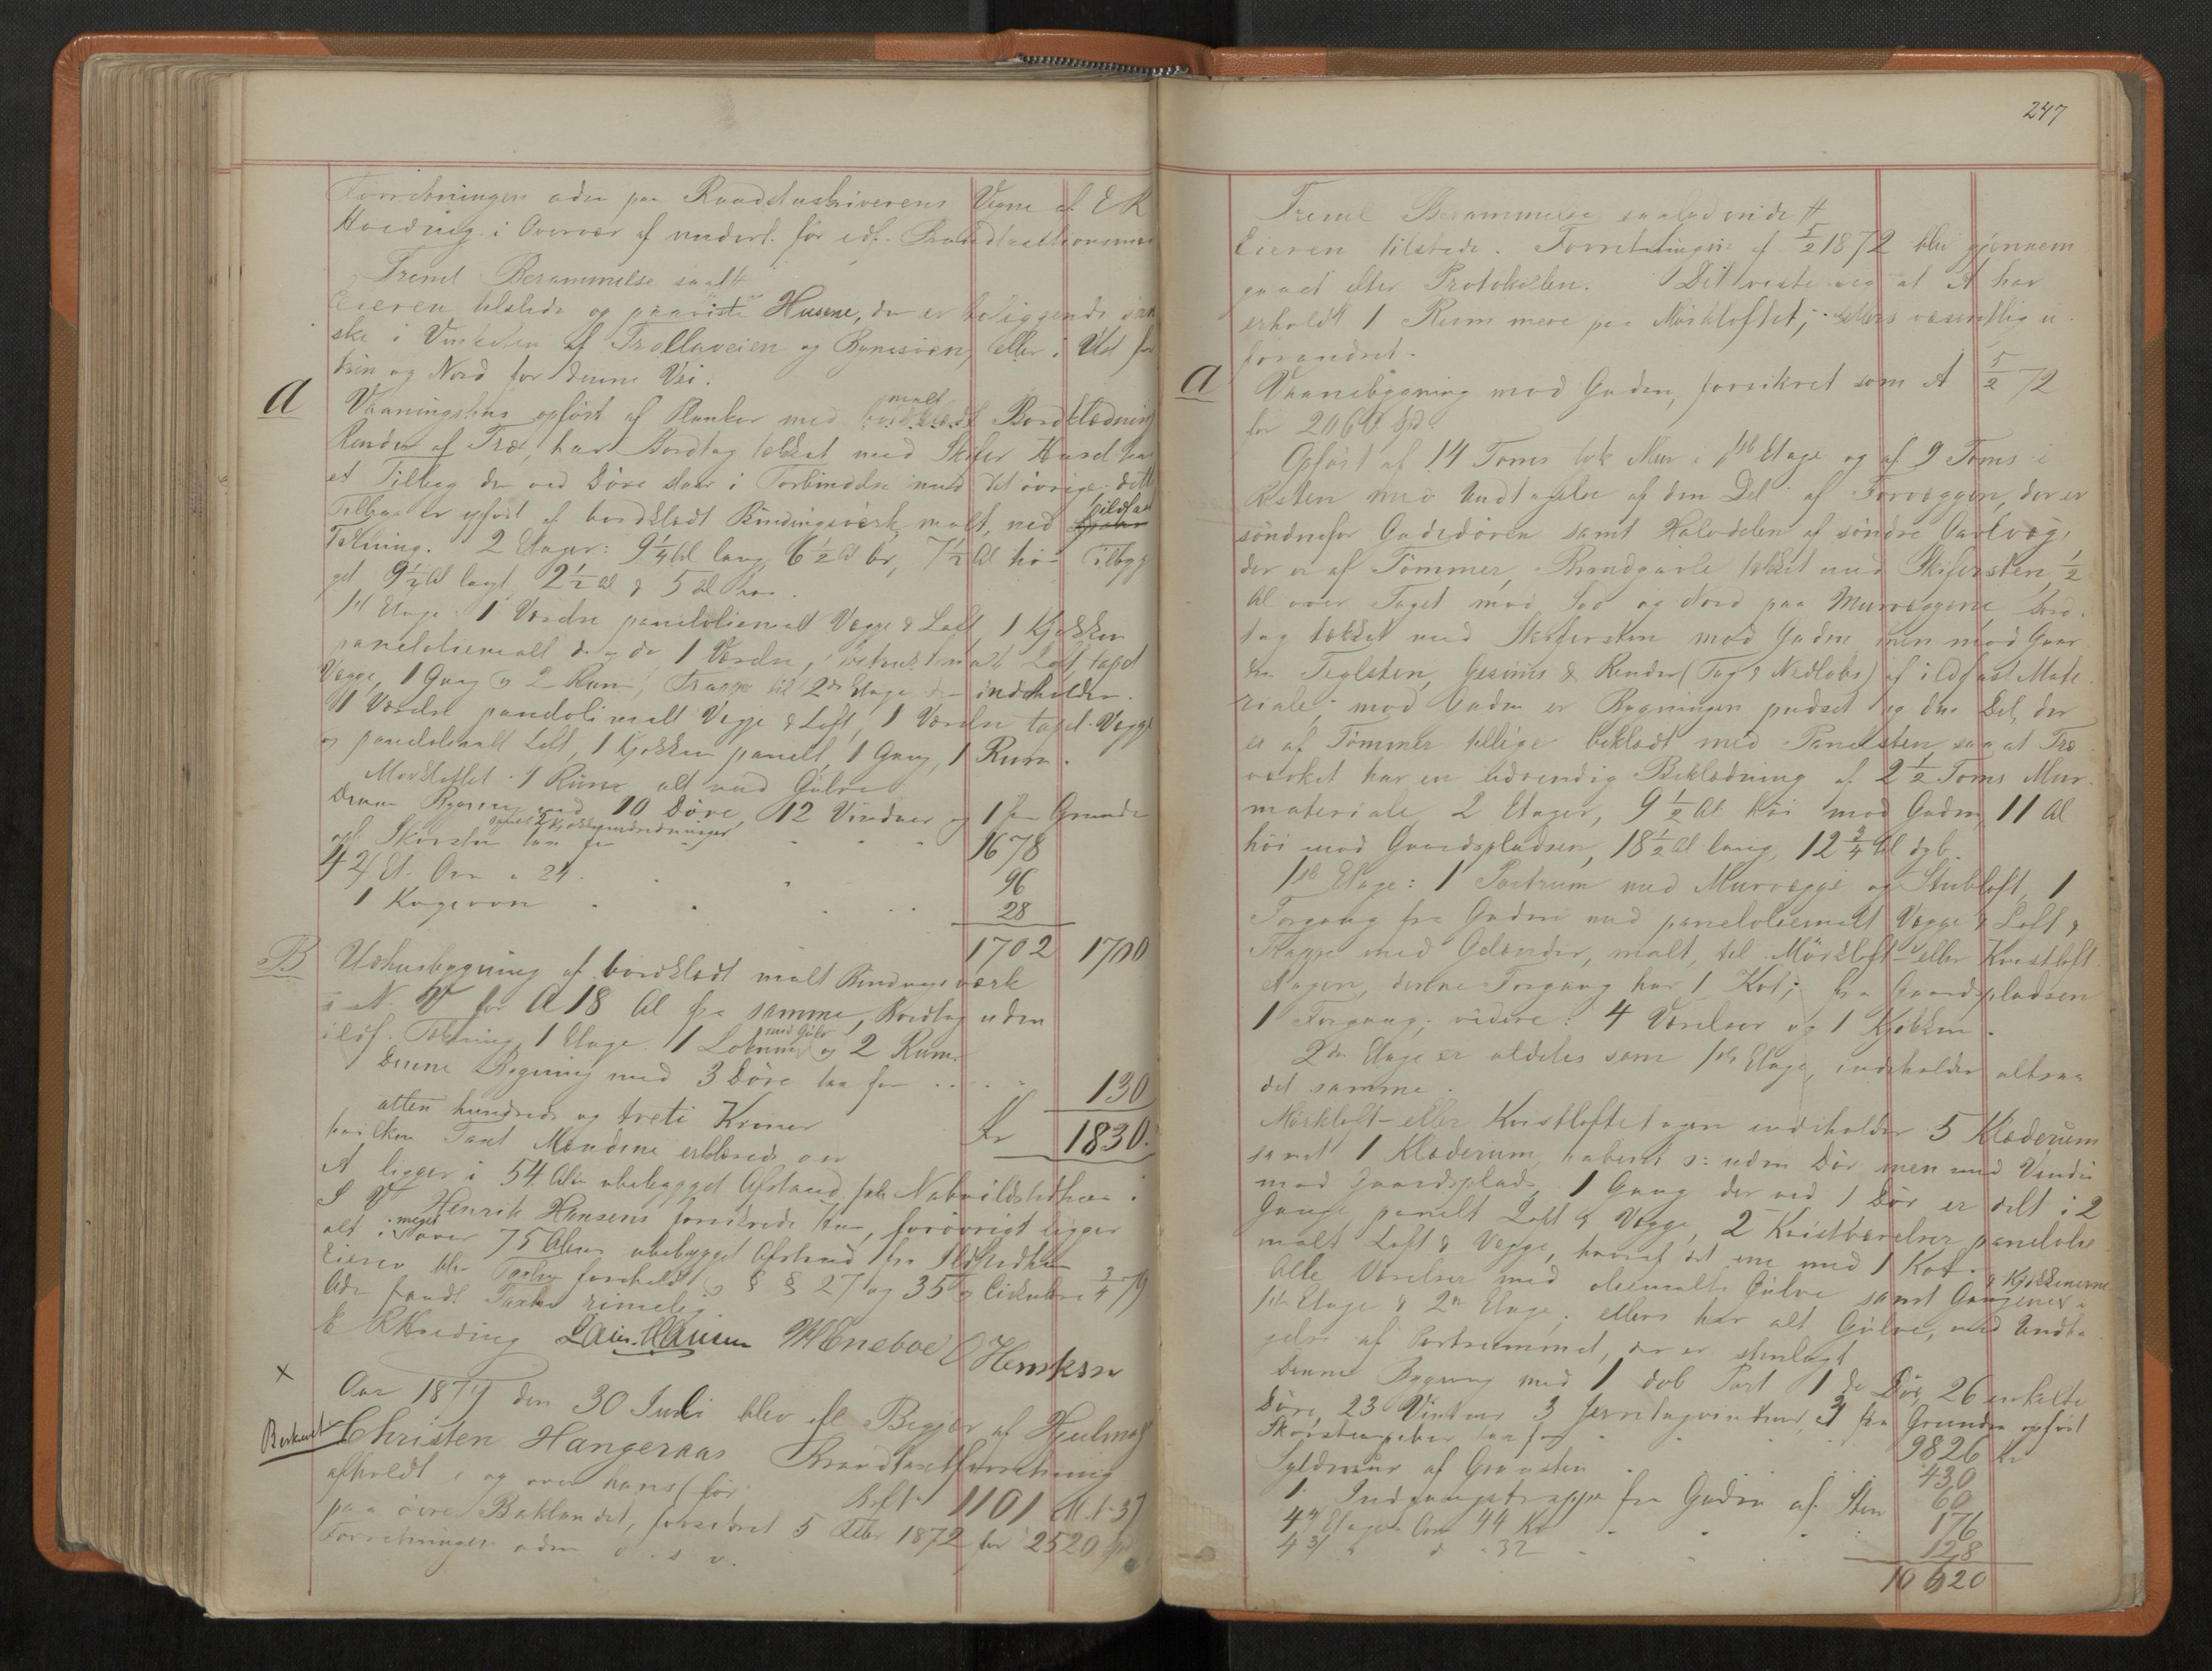 Forretningen adm paa Raadstuskriverens Vegne af E R
Hveding i Overvær af undert. før edf. Brandtaxtionsmænd
Freml Berammelse saalt
Eieren tilstede og paaviste Husene, der er beliggende
ske i Vinkelen af Trollaveien og Bynesveien, eller i Vest for
den og Nord for denne Vei.
a Vaaningshus opført af Planker med malt Bordklædning
Render af Træ, har Bordtag tækket med Skifer Huset har
et Tilbyg der ved Døre staar i Forbindelse med det øvrige dette
Tilbyg er opført af bordklædt Bindingsværk, malt, med ildfast
Tækning. 2 Etager: 9 1/4 Al lang 6 1/2 Al br, 7 1/2 Al høi Tilbyg
get 9 1/2 Al langt, 2 1/2 Al & 5 Al høi.
1st Etage: 1 Værelse paneloliemalt Vægge & Loft, 1 Kjøkken
paneloliemalt do og do 1 Værelse, malt Loft tapet
Vægge, 1 Gang og 2 Rum, Trappe til 2den Etage der indeholder.
1 Værelse paneloliemalt Vægge & Loft, 1 Værelse tapet. Vægge
og paneloliemalt Loft, 1 Kjøkken panelt, 1 Gang, 1 Rum.
Mørkloftet 1 Rum alt med Gulve
Denne Bygning med 10 Døre, 12 Vinduer og 1 fra Grunden
opf. Skorsten samt 2 Kjøkkenindretninger tax for 1678
4 2/ Et. Ovn a 24. 96
1 Kogeovn 28
1702 1700
B Udhusbygning af bordklædt malt Bindingsværk
i N. V for A 18 Al fra samme, Bordtag uden
ildf. Tækning 1 Etage. 1 Lokum med Gulv og 2 Rum.
Denne Bygning med 3 Døre tax for 130
atten hundrede og treti Kroner Kr 1830.
hvilken Taxt Mændene erklærede
A ligger i 54 Alen ubebygget Afstand fra Naboildstedhus i
S V Henrik Hansens forsikrede Hus, forøvrigt ligger
alt i meget over 75 Alens ubebygget Afstand fra Ildstedhus
Eieren blev Taxten foreholdt og § § 27 og 35 og Cirkulære 3/4 79
Adm fandt Taxten rimelig.
E R Hveding Laur. Hansen M Eneboe O Henriksen
x
Aar 1879 den 30 Juli blev efter Begjær af Hjulmag
Beskaaret Christen Hangeraas Brandtaxtforretning
afholdt i og over hans (før
paa øvre Baklandet, Brft. 1101 M.t. 37
forsikret 5 Febr 1872 for 2520 Spd
Forretningen adm o. s v.
247
Freml Berammelse saalydende #
Eieren tilstede. Forretningen af 5/2 1872 blev gjennem
gaaet efter Protokollen. Det viste sig at A har
erholdt 1 Rum mere paa Mørkloftet; ellers væsentlig u
forandret.
a Vaanebygning mod Gaden, forsikret som A 5/2 72
for 2060 Spd.
Opført af 14 Toms tyk Mur i 1ste Etage og af 9 Toms i
Resten med Undtagelse af den Del af Forvæggen, der er
søndenfor Gadedøren samt Halvdelen af søndre Gavlvæg,
der er af Tømmer, Brandgavle tækket med Skifersten, 1/2
Al over Taget mod Syd og Nord paa Murvæggene, bord-
tag tækket med Skifersten mod Gaden men mod Gaar
den Teglsten, Gesims & Render (Tag & Nedløbs) af ildfast Mate
riale; mod Gaden er Bygningen pudset og den Del, der
er af Tømmer tillige beklædt med Panelsten, saa at Træ
værket har en udvendig Beklædning af 2 1/2 Toms Mur-
materiale, 2 Etager, 9 1/2 Al høi mod Gaden, 11 Al
høi mod Gaardspladsen, 18 1/2 Al lang, 12 3/4 Al dyb.
1ste Etage: 1 Portrum med Murvægge og Stubloft, 1
Forgang fra Gaden med paneloliemalt Vægge & Loft &
Trappe med Gelænder, malt, til Mørkloft- eller Kvistloft
Etagen, denne Forgang har 1 Kot; fra Gaardspladsen
1 Forgang; videre: 4 Værelser og 1 Kjøkken.
2den Etage er aldeles som 1ste Etage, indeholder altsaa
det samme.
Mørkloft- eller Kvistloftetagen indeholder 5 Klæderum
samt 1 Klæderum, aabent ɔ: uden Dør, men med Vindu
mod Gaardsplads, 1 Gang der ved 1 Dør er delt i 2
Gange panelt Loft & Vægge, 2 Kvistværelser panelolie
malt Loft & Vægge, hvoraf det ene med 1 Kot.
Alle Værelser med oliemalte Gulve samt Gangene & Kjøkkenerne i
1ste Etage & 2den Etage; ellers har alt Gulve, med Undta
gelse af Portrummet, der er stenlagt
Denne Bygning med 1 dob Port 1 do Dør, 26 enkelte
Døre, 23 Vinduer 3 Jerntagvinduer, 3 fra Grunden opført
Skorstenspiber tax for 9826 Kr
Syldmur af Graasten 430
1 Indgangstrappe fra Gaden af Sten 60
4 4/ Etages Ovn 44 Kr 176
4 3/ " d " 32 128
10620